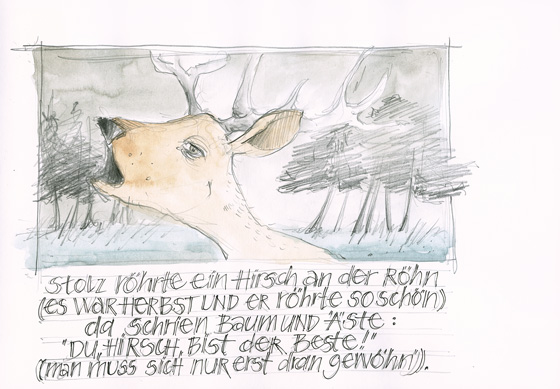 Stolz röhrte ein Hirsch an der Röhn
(es war Herbst und er röhrte so schön)
da schrien Baum und Äste:
"Du, Hirsch, bist der Beste!"
(man muss sich nur erst dran gewöhn')).